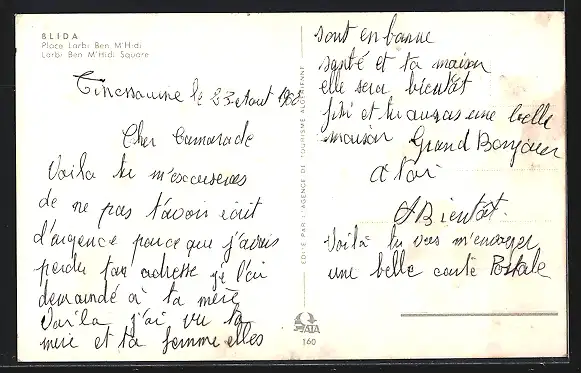 BLIDA
Place Larbi Ben M'Hidi
Larbi Ben M'Hidi Square
le 23 Aout 196
Cher Camarade
Voila tu m'excuseras
de ne pas t'avoir écrit
d'urgence parce que j'avais
perdu ton adresse je l'ai
demandé a ta mère
Voila j'ai vu ta
mere et ta femme elles
EDITE PAR L'AGENCE DE TOURISME ALGERIENNE
ATA
160
sont en bonne
santé et ta maison
elle sera bientôt
fini et tu auras une belle
maison Grand Bonjour
a toi
A Bientôt.
Voilà tu vas m'envoyer
une belle carte Postale